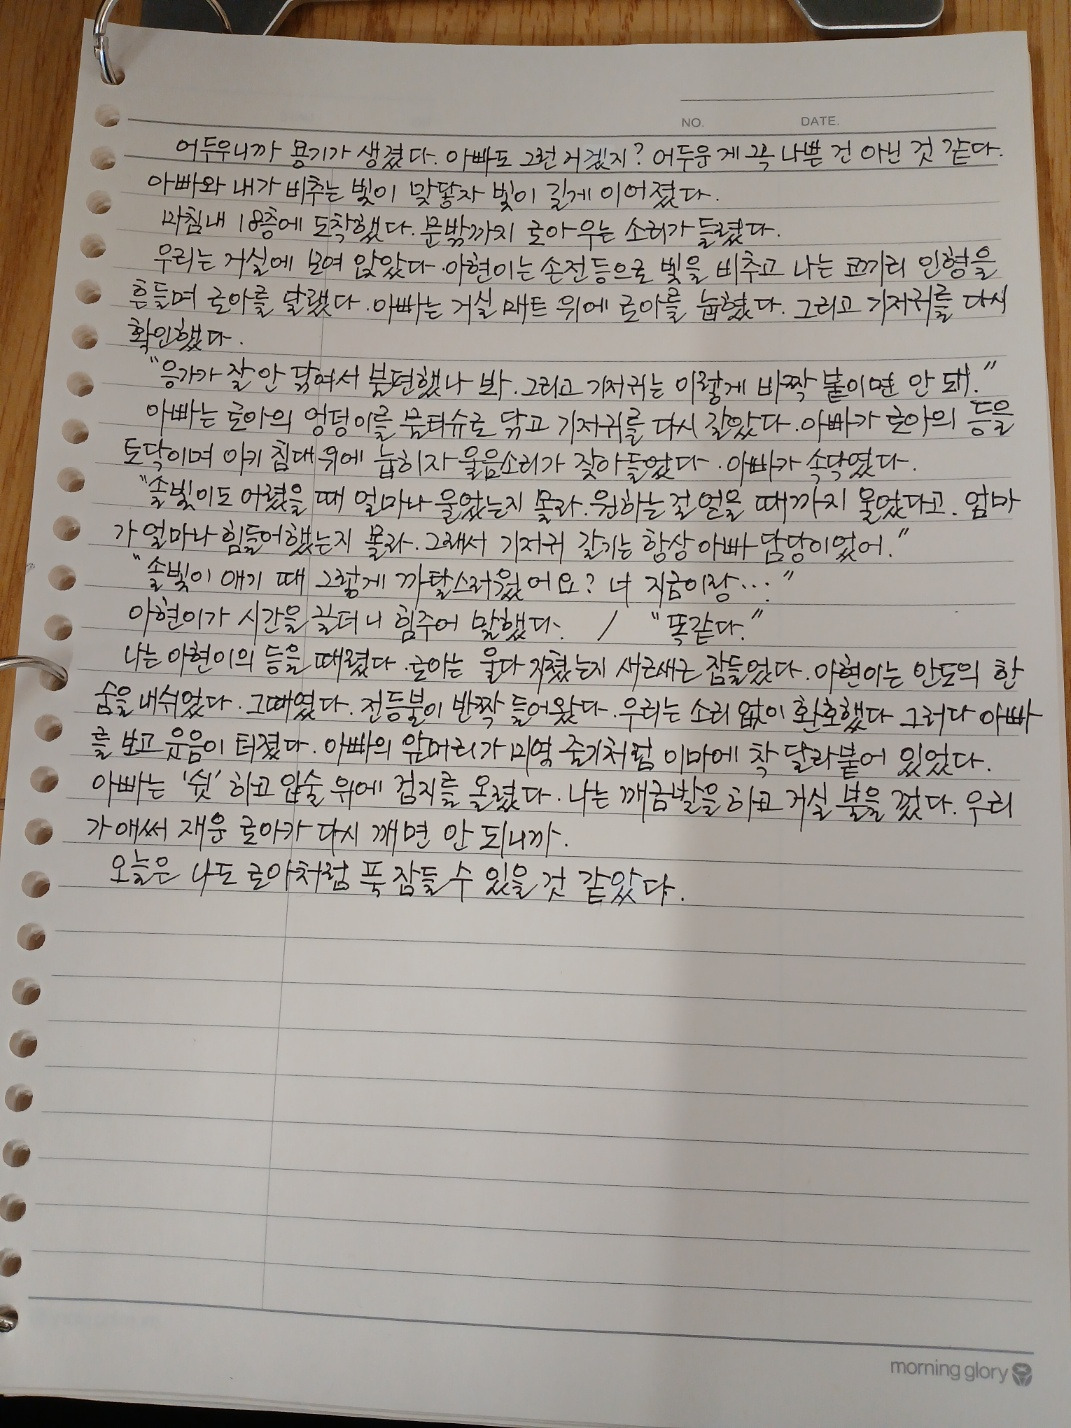 NO. DATE.
어두우니까 용기가 생겼다. 아빠도 그런 거겠지? 어두운 게 꼭 나쁜 건 아닌 것 같다.
아빠와 내가 비추는 빛이 맞닿자 빛이 길게 이어졌다.
마침내 18층에 도착했다. 문밖까지 로아 우는 소리가 들렸다.
우리는 거실에 모여 앉았다. 아현이는 손전등으로 빛을 비추고 나는 코끼리 인형을
흔들며 로아를 달랬다. 아빠는 거실 매트 위에 로아를 눕혔다. 그리고 기저귀를 다시
확인했다.
"응가가 잘 안 닦여서 불편했나 봐. 그리고 기저귀는 이렇게 바짝 붙이면 안 돼."
아빠는 로아의 엉덩이를 물티슈로 닦고 기저귀를 다시 갈았다. 아빠가 로아의 등을
토닥이며 아기 침대 위에 눕히자 울음소리가 잦아들었다. 아빠가 속닥였다.
"솔빛이도 어렸을 때 얼마나 울었는지 몰라. 원하는 걸 얻을 때까지 울었다고. 엄마
가 얼마나 힘들어했는지 몰라. 그래서 기저귀 갈기는 항상 아빠 담당이었어."
"솔빛이 애기 때 그렇게 까탈스러웠어요? 너 지금이랑…."
아현이가 시간을 끌더니 힘주어 말했다. / "똑같다."
나는 아현이의 등을 때렸다. 로아는 울다 지쳤는지 새근새근 잠들었다. 아현이는 안도의 한
숨을 내쉬었다. 그때였다. 전등불이 반짝 들어왔다. 우리는 소리 없이 환호했다 그러다 아빠
를 보고 웃음이 터졌다. 아빠의 앞머리가 미역 줄기처럼 이마에 착 달라붙어 있었다.
아빠는 '쉿' 하고 입술 위에 검지를 올렸다. 나는 깨금발을 하고 거실 불을 껐다. 우리
가 애써 재운 로아가 다시 깨면 안 되니까.
오늘은 나도 로아처럼 푹 잠들 수 있을 것 같았다.
morning glory